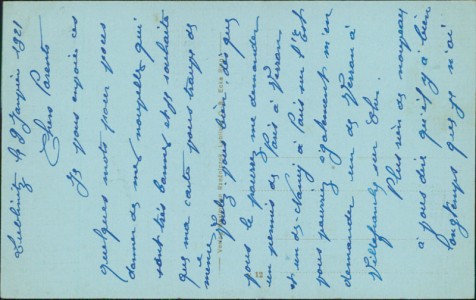 le 9 Janvier 1921
Chers Parents
Je vous envoie ces
quelques mots pour vous
donner de mes nouvelles qui
sont très bonnes et je souhaite
que ma carte vous trouve de
même Voulez vous bien dès que
vous le pourrez me demander
un permis de Paris à
et un de Nancy à Paris sur l'Est
vous pourriez également m'en
demander un de à
Villefranche sur Cher
Plus rien de nouveau
à vous dire qu'il y a bien
longtemps que je n'ai
12